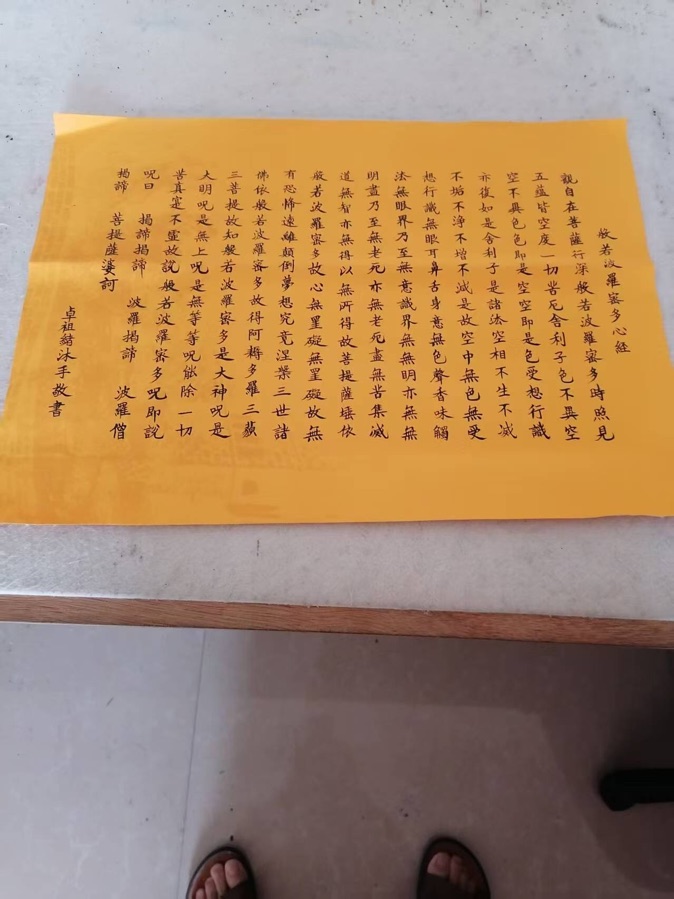 般若波羅蜜多心經
觀自在菩薩行深般若波羅蜜多時照見
五蘊皆空度一切苦厄舍利子色不異空
空不異色色即是空空即是色受想行識
亦復如是舍利子是諸法空相不生不滅
不垢不淨不增不減是故空中無色無受
想行識無眼耳鼻舌身意無色聲香味觸
法無眼界乃至無意識界無無明亦無無
明盡乃至無老死亦無老死盡無苦集滅
道無智亦無得以無所得故菩提薩埵依
般若波羅蜜多故心無罣礙無罣礙故無
有恐怖遠離顛倒夢想究竟涅槃三世諸
佛依般若波羅蜜多故得阿耨多羅三藐
三菩提故知般若波羅蜜多是大神呪是
大明呪是無上呪是無等等呪能除一切
苦真寔不虛故說般若波羅蜜多呪即說
呪曰 揭諦揭諦 波羅揭諦 波羅僧
揭諦 菩提薩婆訶
卓祖沐手敬書